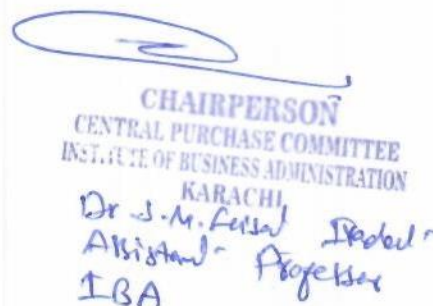 CHAIRPERSON
CENTRAL PURCHASE COMMITTEE
INSTITUTE OF BUSINESS ADMINISTRATION
KARACHI
Dr S.M. Feisal
Assistant Professor
IBA